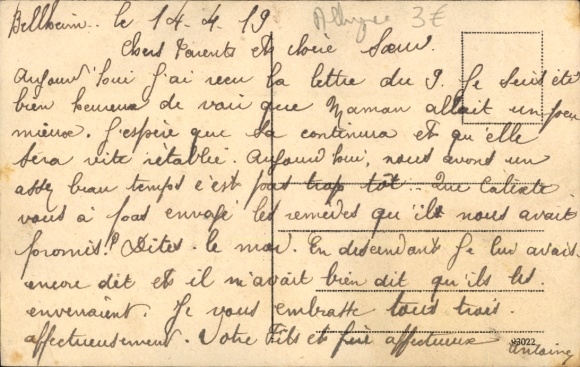 Bellheim. le 14-4-19 3€
Chers Parents et chère Sœur.
Aujourd'houi J'ai recu la lettre du 9. Je suis été
bien heureux de voir que Maman allait un peu
mieux. J'espère que sa continura et qu'elle
sera vite rétablie. Aujourd'houi, nous avons un
assez beau temps c'est pas trop tôt.. Que Calixte
vous à pas envoyé les remedes qu'ils nous avait
promis? Dites-le moi. En descendant Je lui avais
encore dit et il m'avait bien dit qu'ils les
envenaient. Je vous embrasse tous trois
affectueusement. Votre Fils et frère affectueux
93022
Antoine